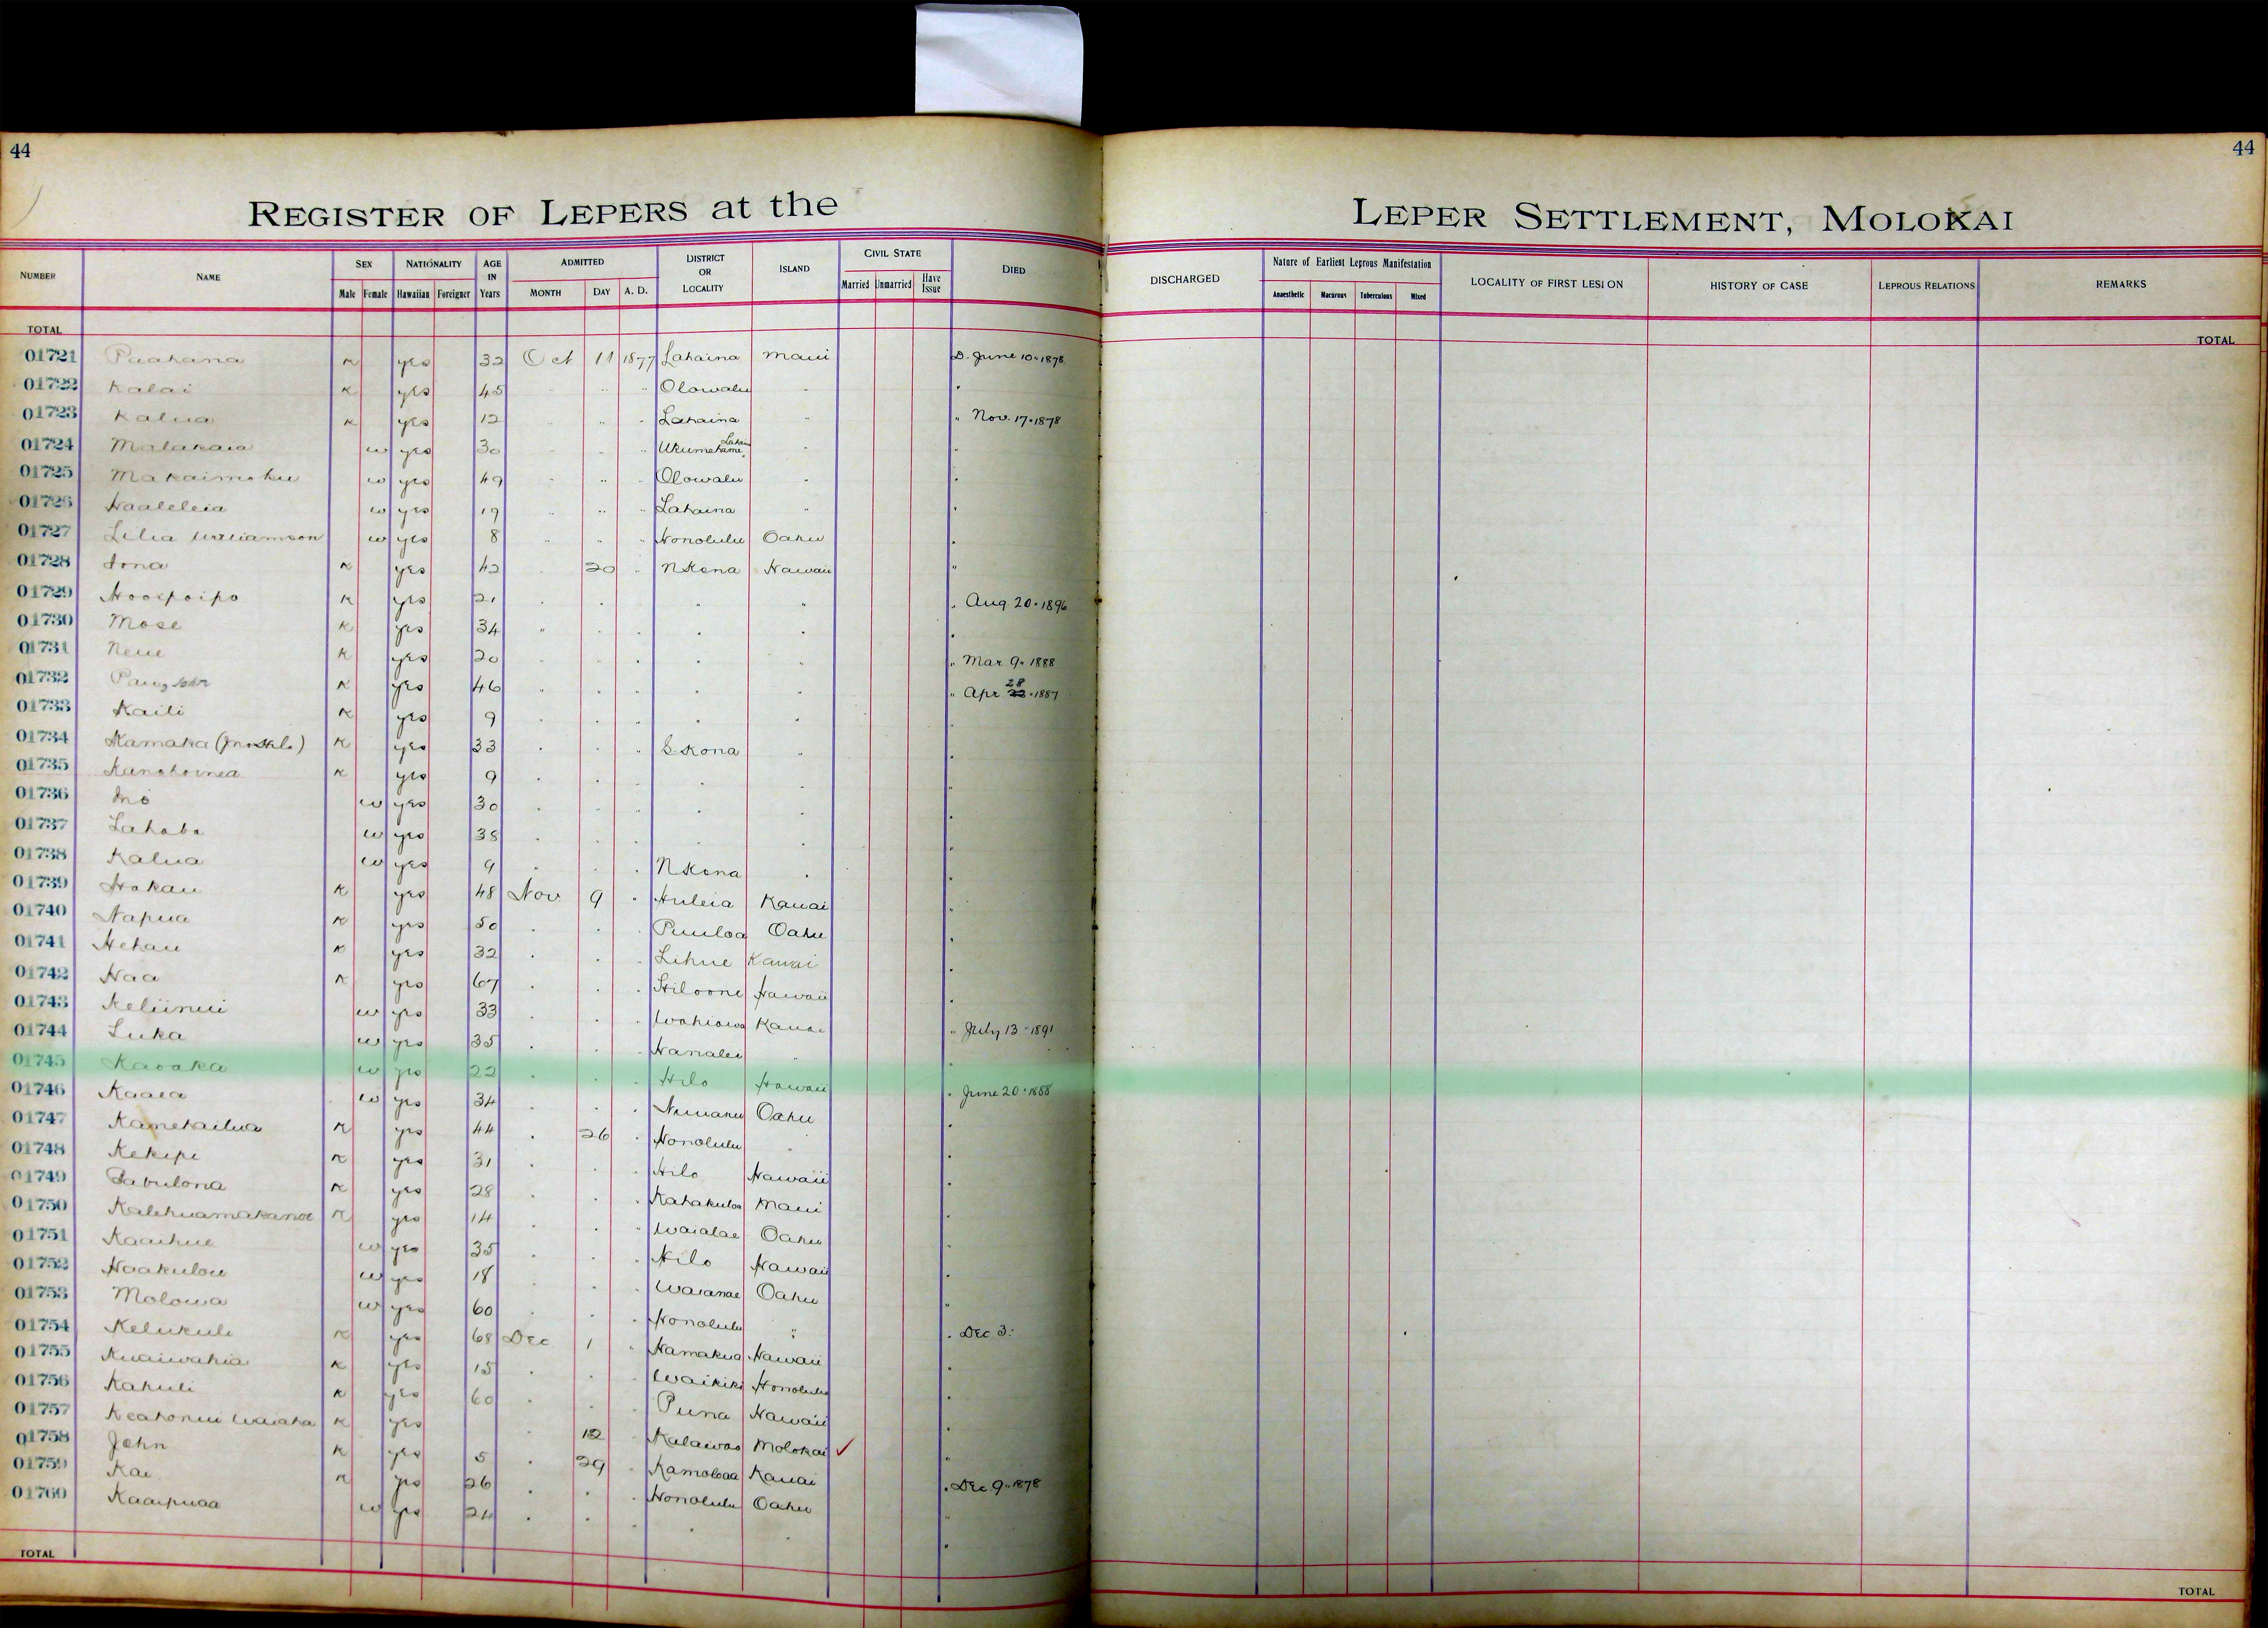 44 44
REGISTER OF LEPERS at the LEPER SETTLEMENT, MOLOKAI
NUMBER NAME SEX Male Female NATIONALITY Hawaiian Foreigner AGE IN Years ADMITTED MONTH DAY A. D. DISTRICT OR LOCALITY ISLAND CIVIL STATE Married Unmarried Have Issue DIED DISCHARGED Nature of Earliest Leprous Manifestation Anaesthetic Macurous Tuberculous Mixed LOCALITY OF FIRST LESION HISTORY OF CASE LEPROUS RELATIONS REMARKS
TOTAL TOTAL
01721 Puahana K yes 32 Oct 11 1877 Lahaina Maui D. June 10 " 1878
01722 Kalai K yes 45 " " " Olowalu " "
01723 Kalua K yes 12 " " " Lahaina " " Nov. 17 " 1878
01724 Malakaia w yes 30 " " " " "
01725 Makaimoku w yes 49 " " " Olowalu " "
01726 Haaleleia w yes 19 " " " Lahaina " "
01727 Lilia Williamson w yes 8 " " " Honolulu Oahu "
01728 Iona K yes 42 " 20 " N Kona Hawaii "
01729 Hooipoipo K yes 21 " " " " " Aug. 20 " 1896
01730 Mose K yes 34 " " " " " "
01731 Neue K yes 20 " " " " " " Mar 9 " 1888
01732 K yes 46 " " " " " " Apr 28 " 1887
01733 Kaili K yes 9 " " " " " "
01734 Kamaka K yes 33 " " " S. Kona " "
01735 K yes 9 " " " " " "
01736 w yes 30 " " " " " "
01737 w yes 38 " " " " " "
01738 Kalua w yes 9 " " " N Kona " "
01739 Hokau K yes 48 Nov 9 " Huleia Kauai "
01740 Napua K yes 50 " " " Puuloa Oahu "
01741 Hehau K yes 32 " " " Lihue Kauai "
01742 Naa K yes 67 " " " Hawaii "
01743 Keliinui w yes 33 " " " Wahiawa Kauai " July 13 " 1891
01744 Luka w yes 35 " " " Hanalei " "
01745 Kaoaka w yes 22 " " " Hilo Hawaii " June 20 " 1888
01746 Kaaea w yes 34 " " " Nuuanu Oahu "
01747 Kamehailua K yes 44 " 26 " Honolulu " "
01748 Kekipi K yes 31 " " " Hilo Hawaii "
01749 K yes 28 " " " Kahakuloa Maui "
01750 Kalehuamakanoe K yes 14 " " " Waialae Oahu "
01751 Kaaihue w yes 35 " " " Hilo Hawaii "
01752 Haakulou w yes 18 " " " Waianae Oahu "
01753 Molowa w yes 60 " " " Honolulu " " Dec 3.
01754 K yes 68 Dec 1 " Hamakua Hawaii "
01755 Kuaiwahia K yes 15 " " " Waikiki Honolulu "
01756 Kahuli K yes 60 " " " Puna Hawaii "
01757 K yes " 12 " Kalawao Molokai ✓ "
01758 John K yes 5 " 29 " Kamoloaa Kauai " Dec 9 " 1878
01759 Kai K yes 26 " " " Honolulu Oahu "
01760 Kaaipuaa w yes 24 " " " " " "
TOTAL TOTAL